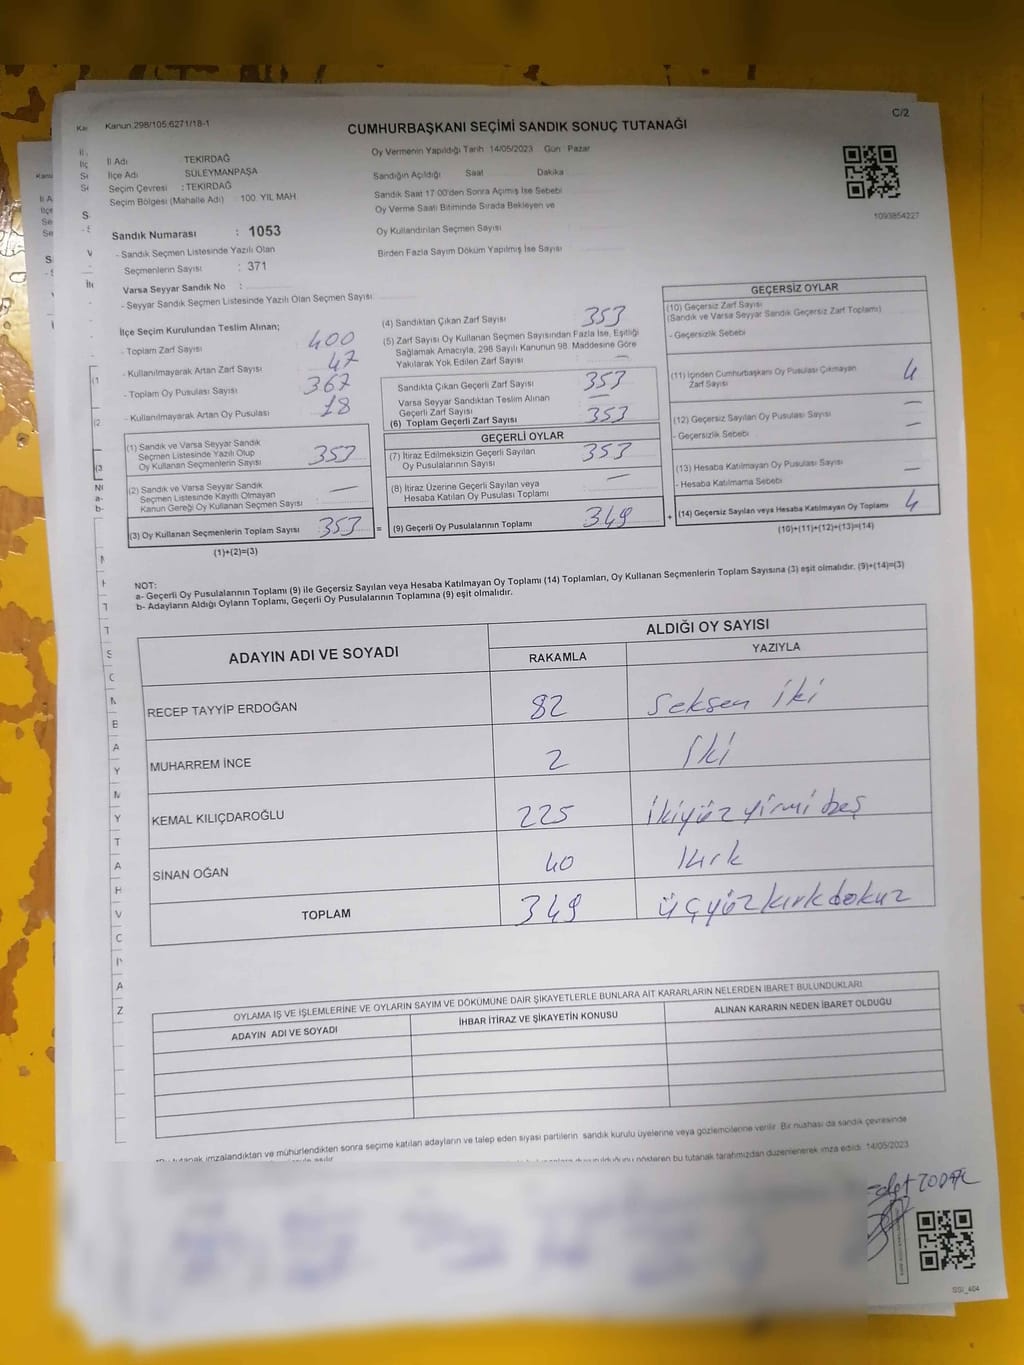 Kanun.298/105;6271/18-1
C/2
CUMHURBAŞKANI SEÇİMİ SANDIK SONUÇ TUTANAĞI
İl Adı TEKİRDAĞ
İlçe Adı SÜLEYMANPAŞA
Seçim Çevresi : TEKİRDAĞ
Seçim Bölgesi (Mahalle Adı) 100. YIL MAH
Oy Vermenin Yapıldığı Tarih 14/05/2023 Gün Pazar
Sandığın Açıldığı Saat Dakika
Sandık Saat 17:00'den Sonra Açımış İse Sebebi
Oy Verme Saati Bitiminde Sırada Bekleyen ve
Oy Kullandırılan Seçmen Sayısı
Birden Fazla Sayım Döküm Yapılmış İse Sayısı
1093854227
Sandık Numarası : 1053
- Sandık Seçmen Listesinde Yazılı Olan
Seçmenlerin Sayısı : 371
Varsa Seyyar Sandık No :
- Seyyar Sandık Seçmen Listesinde Yazılı Olan Seçmen Sayısı
İlçe Seçim Kurulundan Teslim Alınan;
- Toplam Zarf Sayısı 400
- Kullanılmayarak Artan Zarf Sayısı 47
- Toplam Oy Pusulası Sayısı 367
- Kullanılmayarak Artan Oy Pusulası 18
(1) Sandık ve Varsa Seyyar Sandık
Seçmen Listesinde Yazılı Olup
Oy Kullanan Seçmenlerin Sayısı 353
(2) Sandık ve Varsa Seyyar Sandık
Seçmen Listesinde Kayıtlı Olmayan
Kanun Gereği Oy Kullanan Seçmen Sayısı —
(3) Oy Kullanan Seçmenlerin Toplam Sayısı 353 =
(1)+(2)=(3)
(4) Sandıktan Çıkan Zarf Sayısı 353
(5) Zarf Sayısı Oy Kullanan Seçmen Sayısından Fazla İse, Eşitliği
Sağlamak Amacıyla, 298 Sayılı Kanunun 98. Maddesine Göre
Yakılarak Yok Edilen Zarf Sayısı —
Sandıkta Çıkan Geçerli Zarf Sayısı 353
Varsa Seyyar Sandıktan Teslim Alınan
Geçerli Zarf Sayısı —
(6) Toplam Geçerli Zarf Sayısı 353
GEÇERLİ OYLAR
(7) İtiraz Edilmeksizin Geçerli Sayılan
Oy Pusulalarının Sayısı 353
(8) İtiraz Üzerine Geçerli Sayılan veya
Hesaba Katılan Oy Pusulası Toplamı —
(9) Geçerli Oy Pusulalarının Toplamı 349 +
GEÇERSİZ OYLAR
(10) Geçersiz Zarf Sayısı
(Sandık ve Varsa Seyyar Sandık Geçersiz Zarf Toplamı)
- Geçersizlik Sebebi
(11) İçinden Cumhurbaşkanı Oy Pusulası Çıkmayan
Zarf Sayısı 4
(12) Geçersiz Sayılan Oy Pusulası Sayısı —
- Geçersizlik Sebebi —
(13) Hesaba Katılmayan Oy Pusulası Sayısı —
- Hesaba Katılmama Sebebi
(14) Geçersiz Sayılan veya Hesaba Katılmayan Oy Toplamı 4
(10)+(11)+(12)+(13)=(14)
NOT:
a- Geçerli Oy Pusulalarının Toplamı (9) ile Geçersiz Sayılan veya Hesaba Katılmayan Oy Toplamı (14) Toplamları, Oy Kullanan Seçmenlerin Toplam Sayısına (3) eşit olmalıdır. (9)+(14)=(3)
b- Adayların Aldığı Oyların Toplamı, Geçerli Oy Pusulalarının Toplamına (9) eşit olmalıdır.
ADAYIN ADI VE SOYADI
ALDIĞI OY SAYISI
RAKAMLA YAZIYLA
RECEP TAYYİP ERDOĞAN 82 Seksen iki
MUHARREM İNCE 2 İki
KEMAL KILIÇDAROĞLU 225 ikiyüz yirmi beş
SİNAN OĞAN 40 Kırk
TOPLAM 349 üçyüz kırk dokuz
OYLAMA İŞ VE İŞLEMLERİNE VE OYLARIN SAYIM VE DÖKÜMÜNE DAİR ŞİKAYETLERLE BUNLARA AİT KARARLARIN NELERDEN İBARET BULUNDUKLARI
ADAYIN ADI VE SOYADI İHBAR İTİRAZ VE ŞİKAYETİN KONUSU ALINAN KARARIN NEDEN İBARET OLDUĞU
tutanak imzalandıktan ve mühürlendikten sonra seçime katılan adayların ve talep eden siyasi partilerin sandık kurulu üyelerine veya gözlemcilerine verilir. Bir nüshası da sandık çevresinde
gösteren bu tutanak tarafımızdan düzenlenerek imza edildi. 14/05/2023
SSI_404